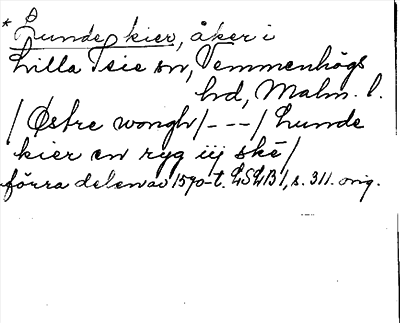 * Lunde kier, åker i
Lilla Isie sn, Vemmenhögs
hd, Malm. l.
/ Østre wongh/---/ Lunde
kier en ryg iij ske /
förra delen av 1570-t. LSLB 1, s. 311. orig.